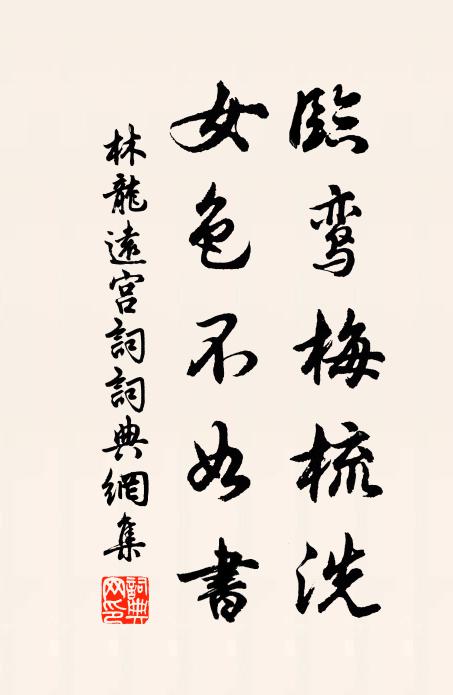 臨鸾梅梳洗
女色不如書
林龍遠宮詞詞典網集
詞典网印